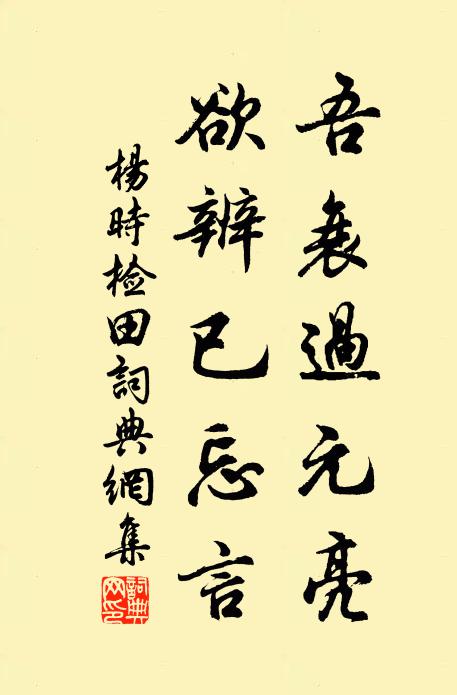 吾衰過元亮
欲辨已忘言
楊時檢田詞典網集
詞典網印